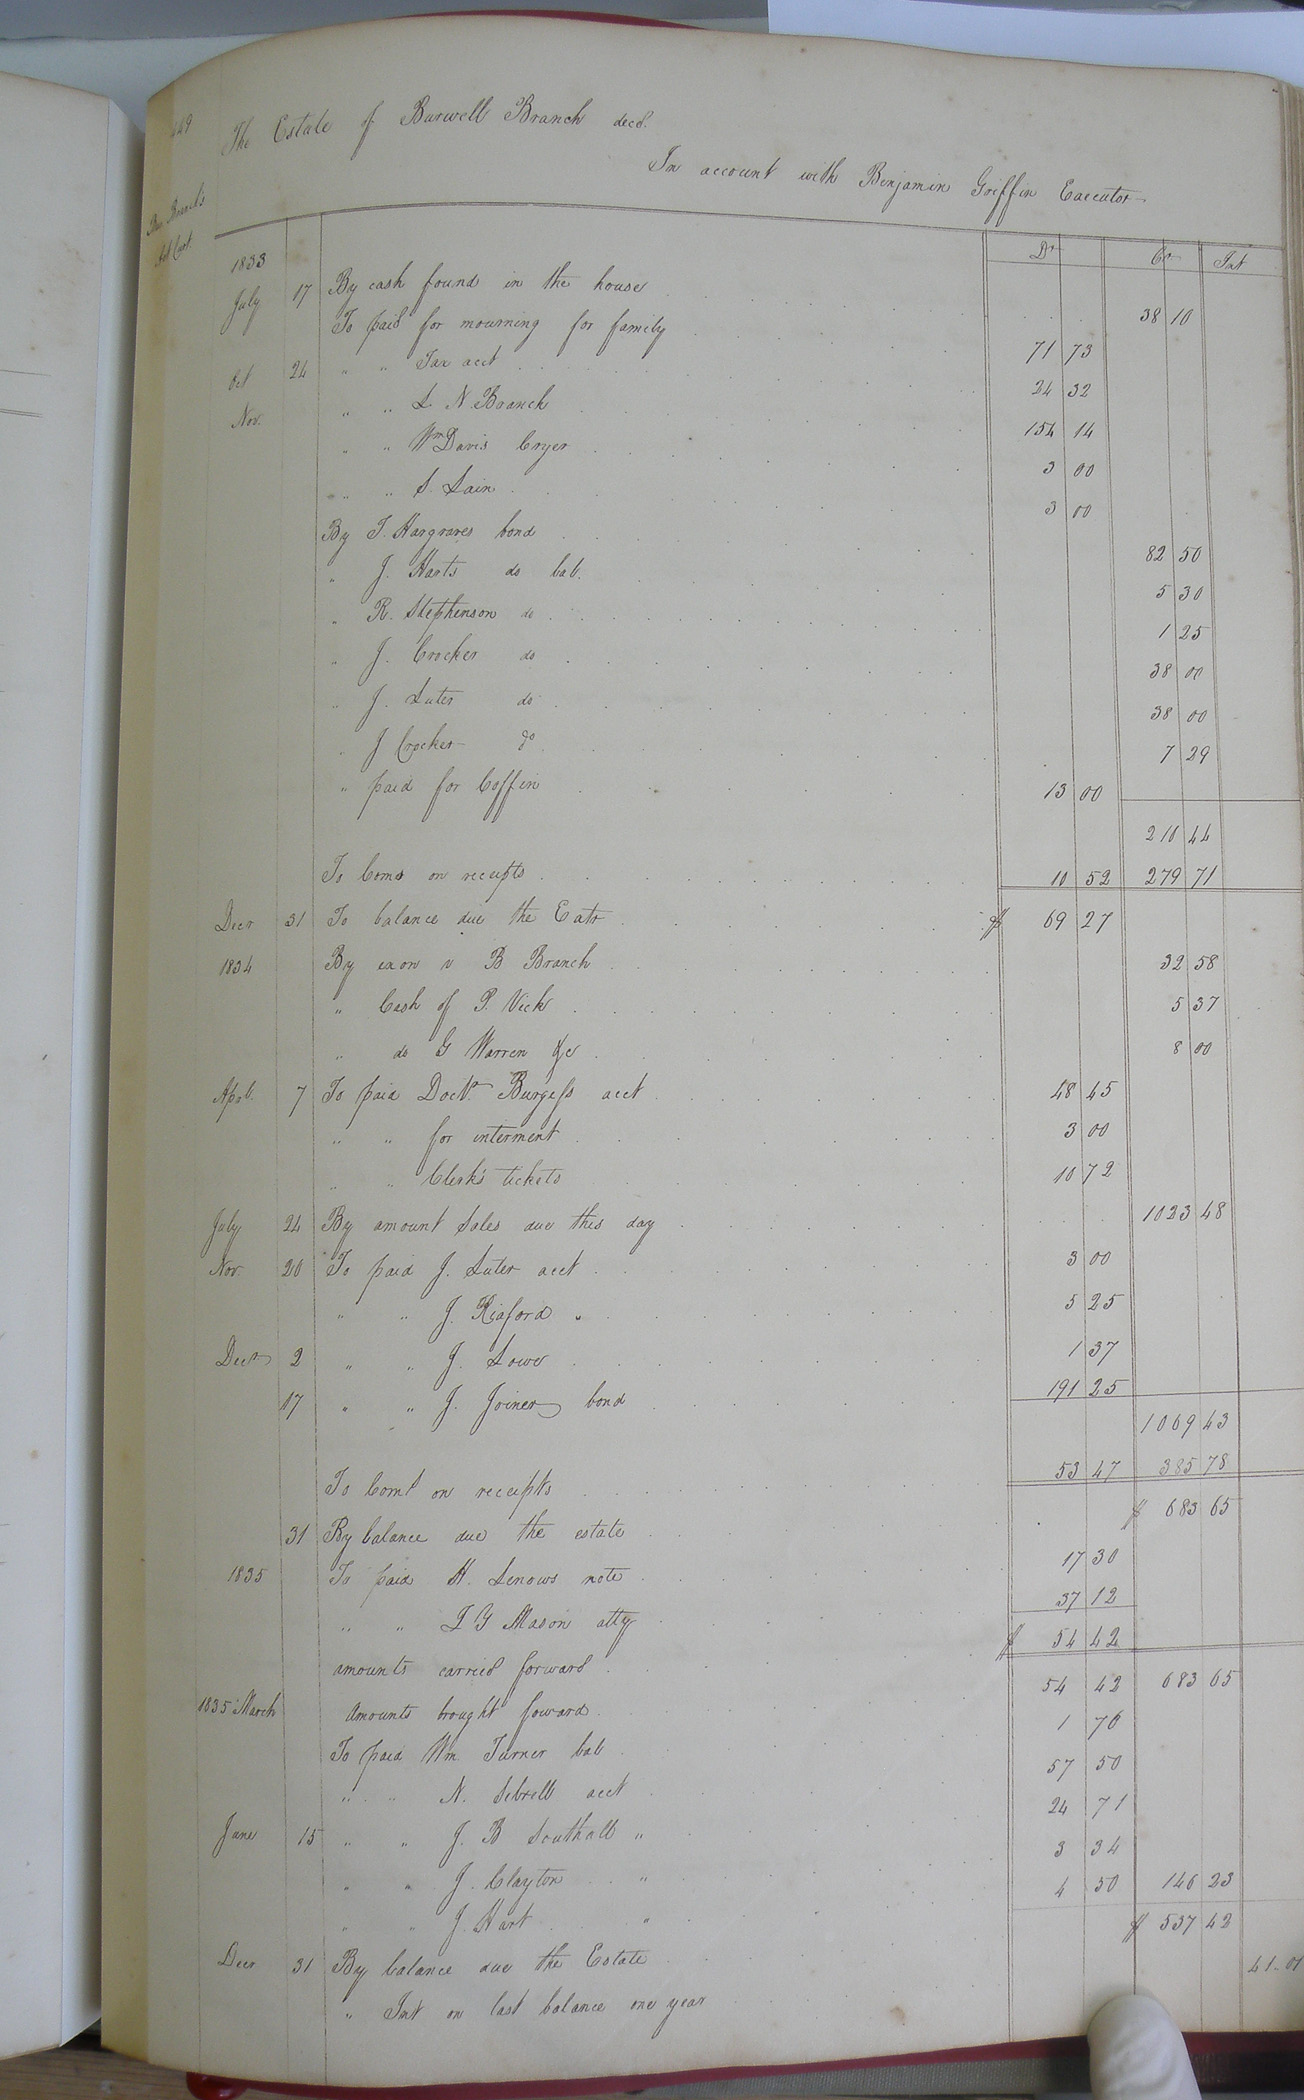 The Estate of Burwell Branch decd.
In account with Benjamin Griffin Executor
Bur Branch's
Dr Cr Int
1833
July 17 By cash found in the house 38 10
To paid for mourning for family 71 73
Oct 24 " " Tax acct 24 32
Nov. " " L. N. Branch 154 14
" " Wm Davis Cryer 3 00
" " S. Lain 3 00
By T. Hargraves bond 82 50
" J. Harts do bal. 5 30
" R. Stephenson do 1 25
" J. Crocker do 38 00
" J. Luter do 38 00
" J Crocker do 7 29
" paid for Coffin 13 00
210 44
To Coms on receipts 10 52 279 71
Decr 31 To balance due the Extr $ 69 27
1834 By exon v B Branch 32 58
" Cash of P. Vick 5 37
" do G Warren &c 8 00
Aprl. 7 To paid Doctr. Burgess acct 48 45
" " for interment 3 00
" " Clerk's tickets 10 72
July 24 By amount Sales due this day 1023 48
Nov. 20 To paid J. Luter acct 3 00
" " J. Kiaford " 5 25
Decr 2 " " J. Lowe 1 37
17 " " J. Joiner bond 191 25
1069 43
To Coms on receipts 53 47 385 78
31 By balance due the estate $ 683 65
1835 To paid H. Lenows note 17 30
" " L G Mason atty 37 12
amounts carried forward $ 54 42
1835 March Amounts brought foward 54 42 683 65
To paid Wm Turner bal 1 76
" " N. Sebrell acct 57 50
June 15 " " J. B Southall " 24 71
" " J. Clayton " 3 34
" " J. Hart " 4 50 146 23
Decr 31 By balance due the Estate $ 537 42
" Int on last balance one year 41.01